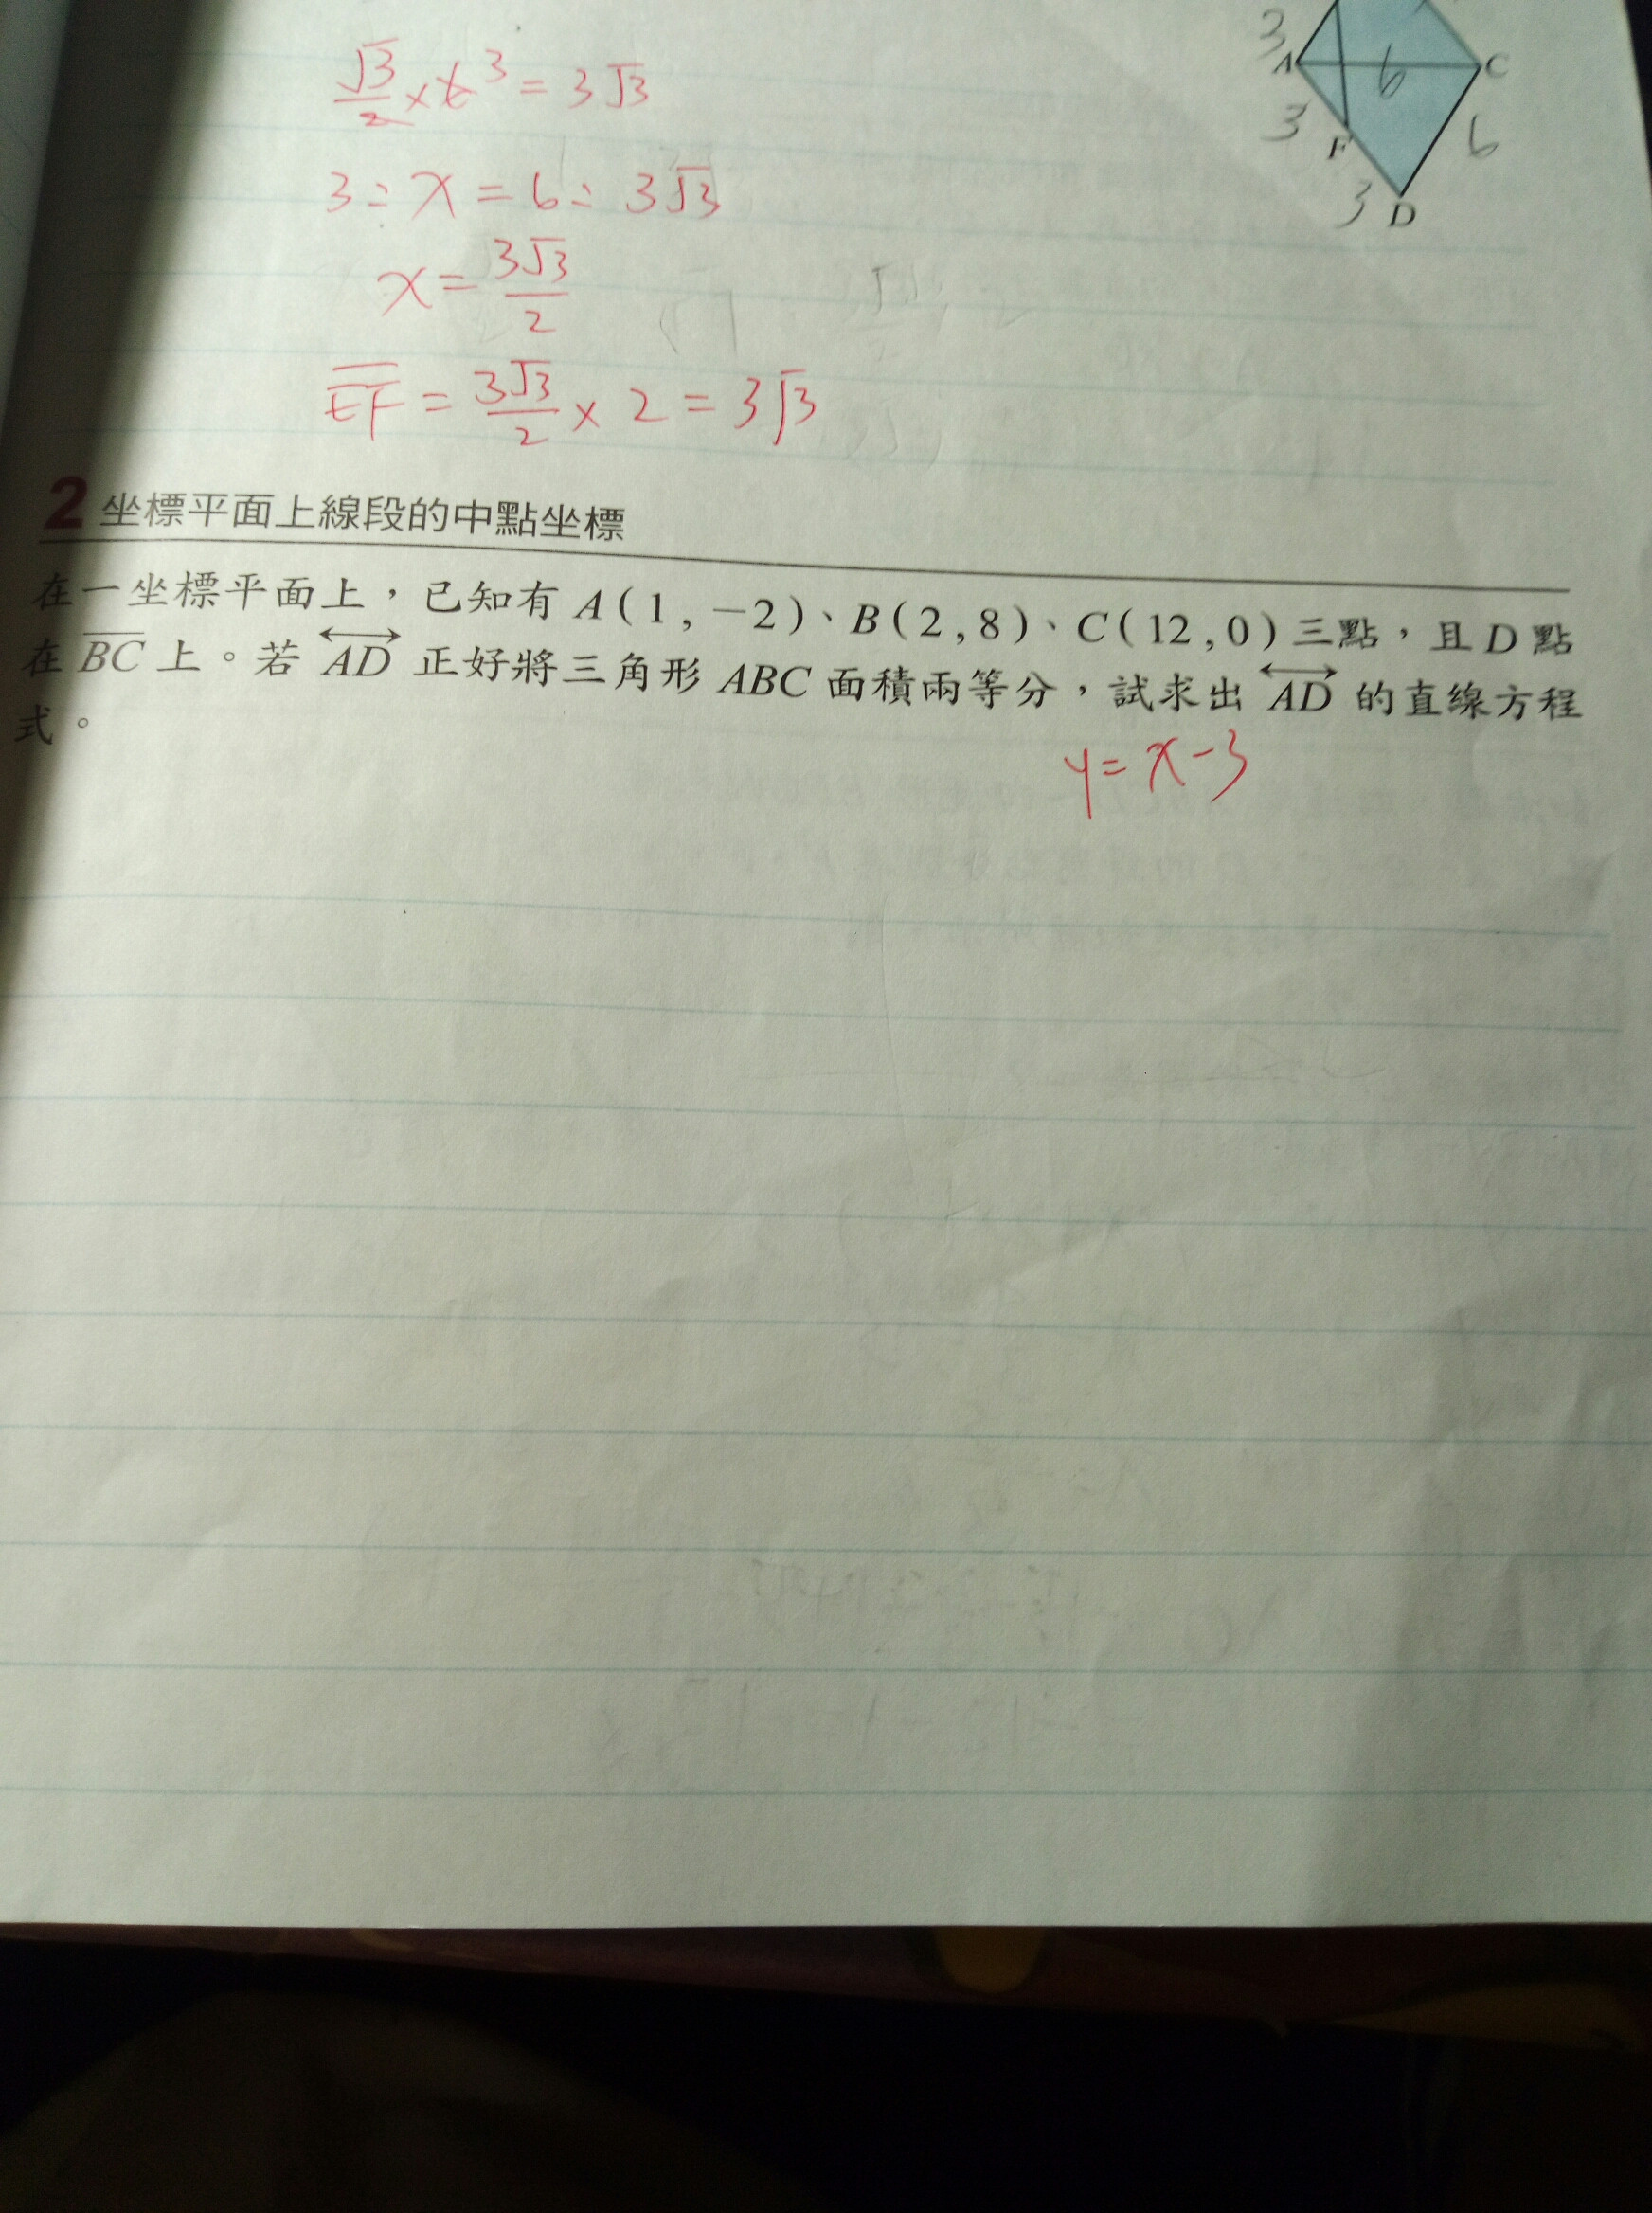 3
A
6
C
√3/2 × 6 3 = 3√3
3
F
6
3 : x = 6 : 3√3
3
D
x = 3√3/2
EF = 3√3/2 × 2 = 3√3
2 坐標平面上線段的中點坐標
在一坐標平面上，已知有 A(1,−2)、B(2,8)、C(12,0)三點，且D點
在 BC 上。若 AD 正好將三角形 ABC 面積兩等分，試求出 AD 的直線方程
式。
y = x − 3